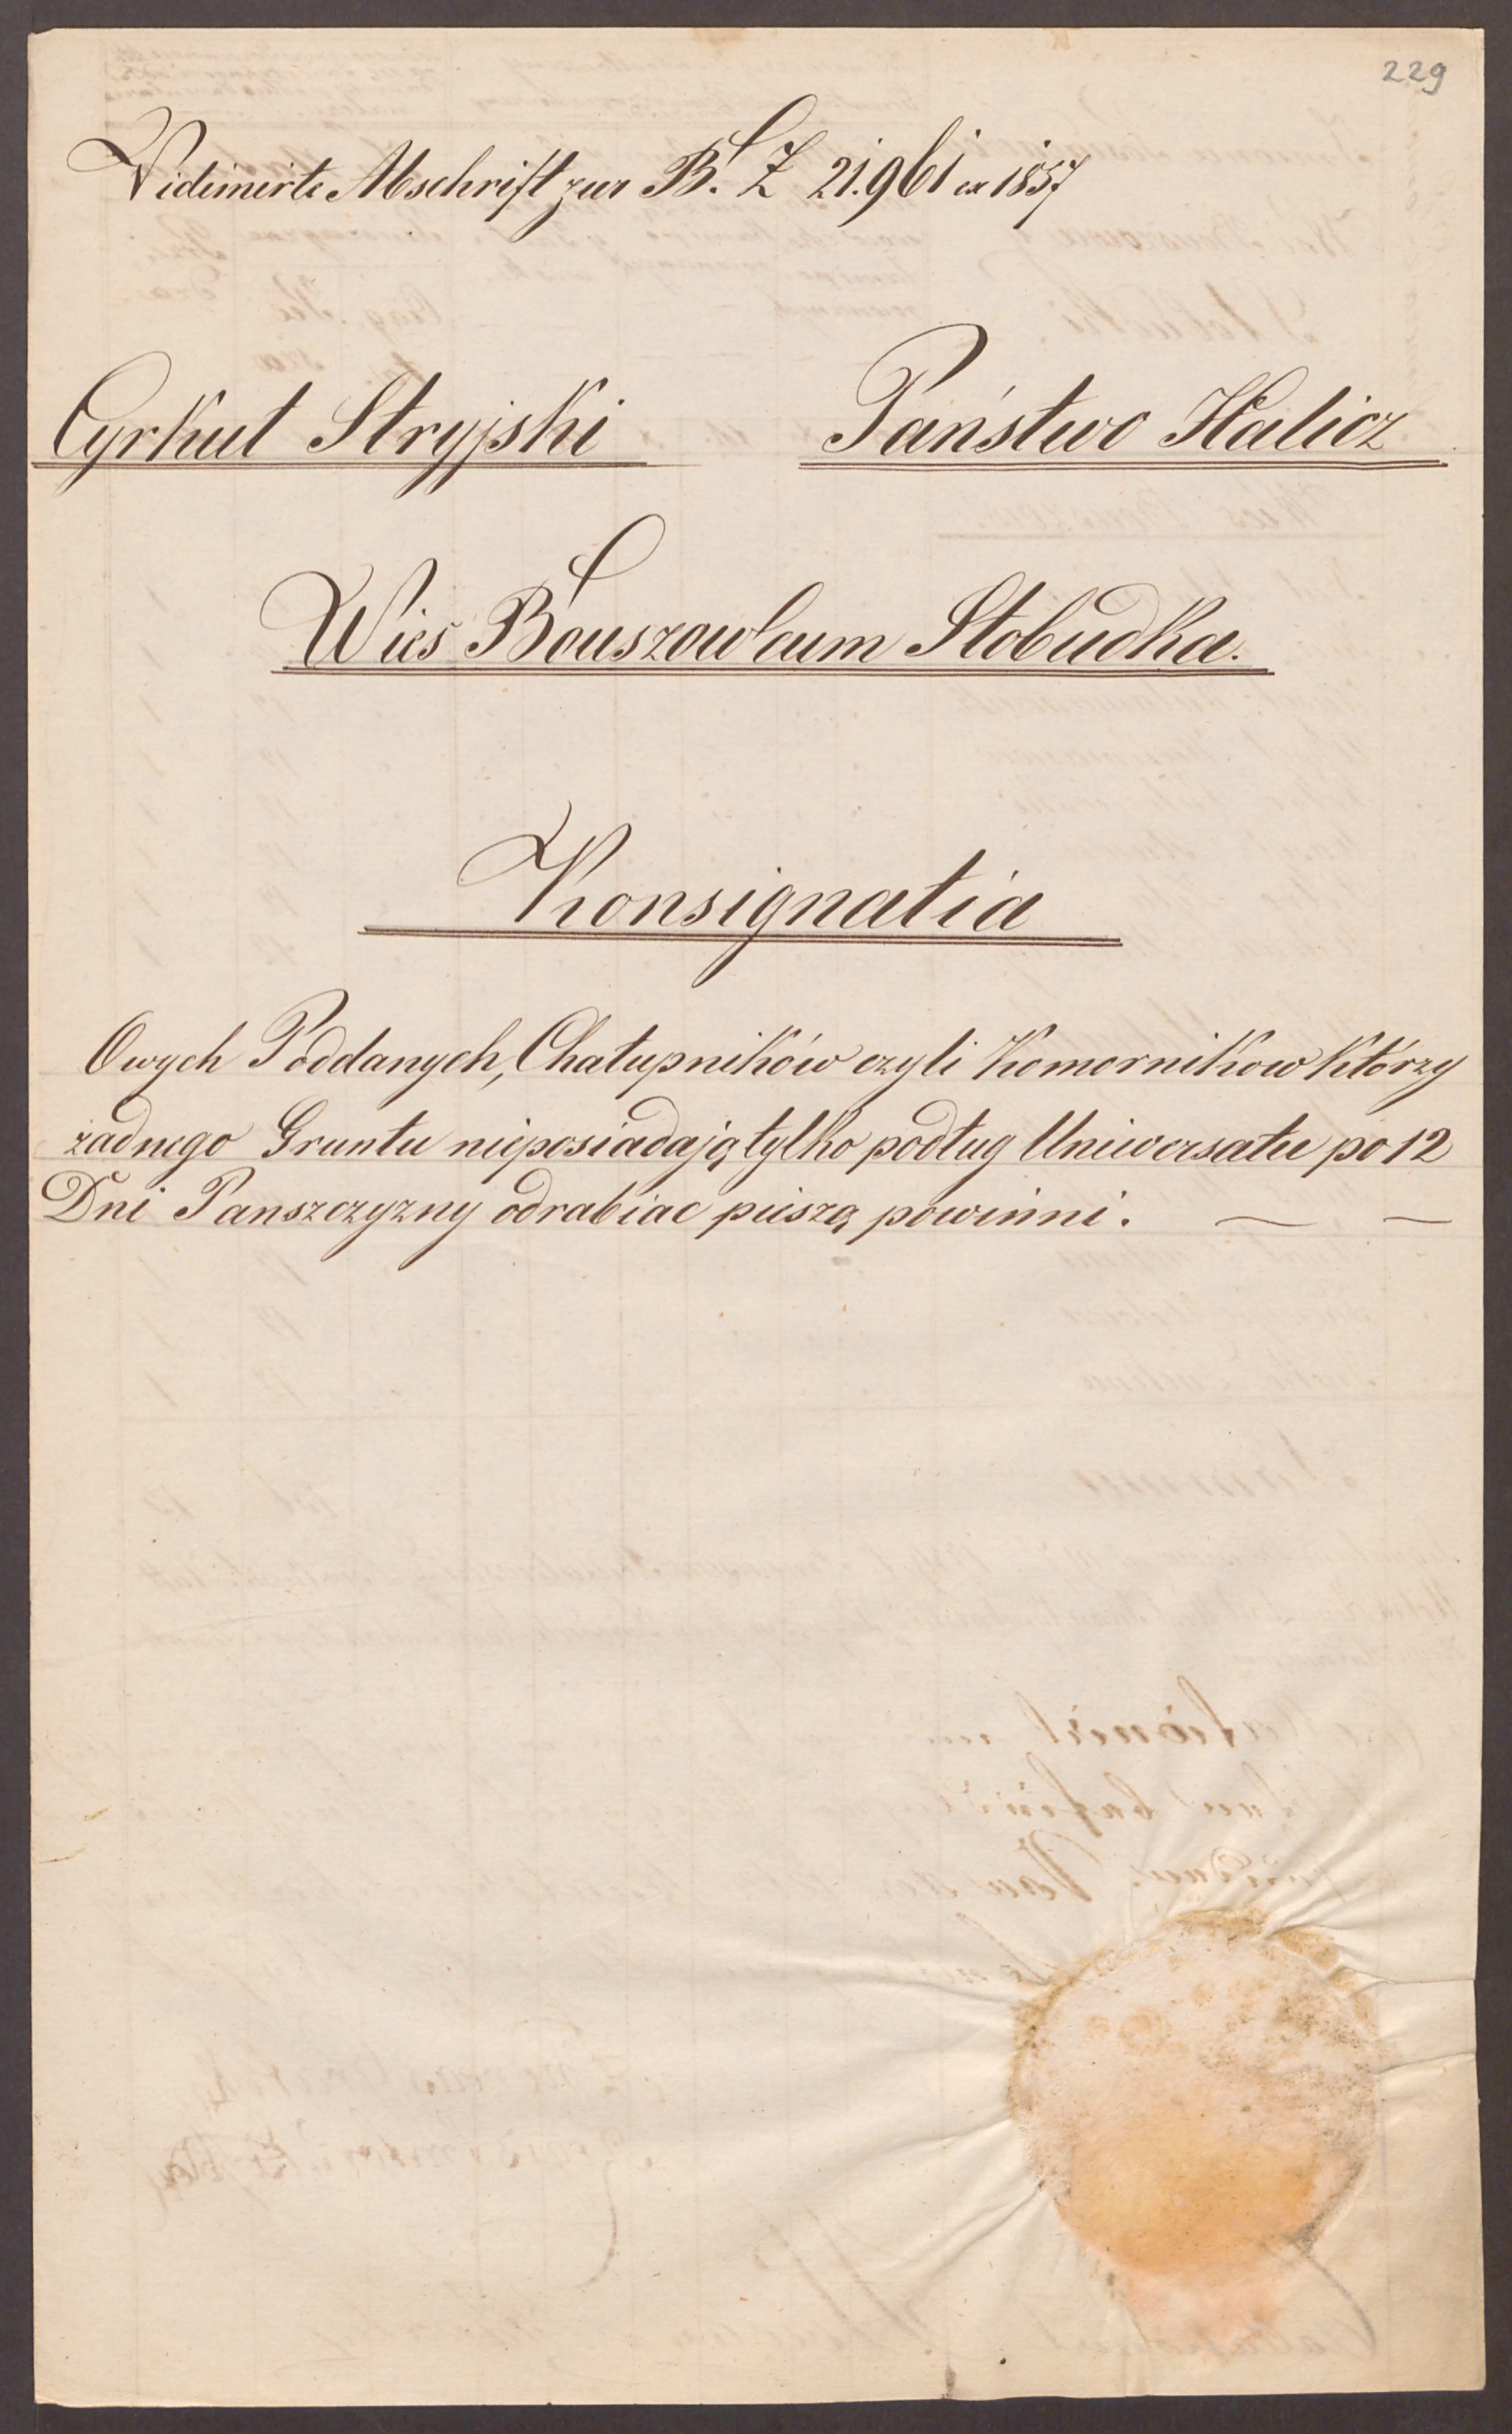 229
Vidimirte Abschrift zur B. Z 21.961 ex 1857
Cyrkuł Stryjski Państwo Halicz
Wies Bouszow cum Słobudka.
Konsignatia
Owych Poddanych, Chałupników czyli Komornikow którzy
żadnego Gruntu nieposiadają tylko podług Uniwersału po 12
Dni Panszczyzny odrabiac pieszą powinni.